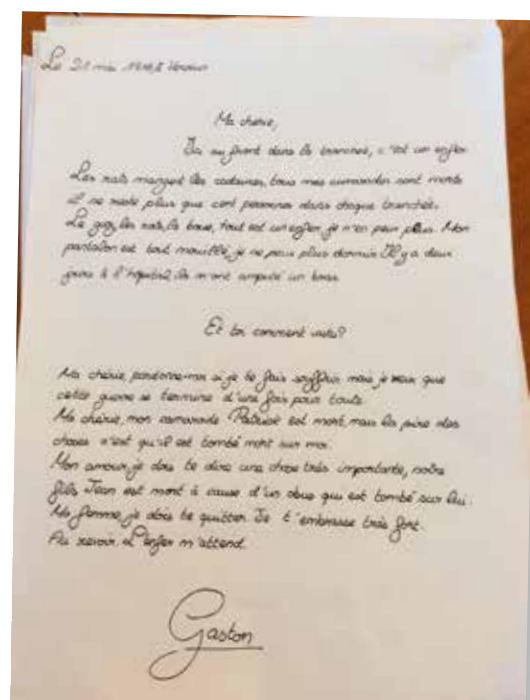 Le 21 mai 1916, à Verdun
Ma chérie,
Ici au front dans les tranchées, c'est un enfer.
Les rats mangent les cadavres, tous mes camarades sont morts
il ne reste plus que cent personnes dans chaque tranchée.
Le gaz, les rats, la boue, tout est un enfer, je n'en peux plus. Mon
pantalon est tout mouillé, je ne peux plus dormir. Il y a deux
jours à l'hôpital, ils m'ont amputé un bras.
Et toi comment vas-tu?
Ma chérie, pardonne-moi si je te fais souffrir mais je veux que
cette guerre se termine d'une fois pour toute.
Ma chérie, mon camarade Patrick est mort, mais la pire des
choses c'est qu'il est tombé mort sur moi.
Mon amour, je dois te dire une chose très importante, notre
fils Jean est mort à cause d'un obus qui est tombé sur lui.
Ma femme, je dois te quitter. Je t'embrasse très fort.
Au revoir. L'enfer m'attend.
Gaston